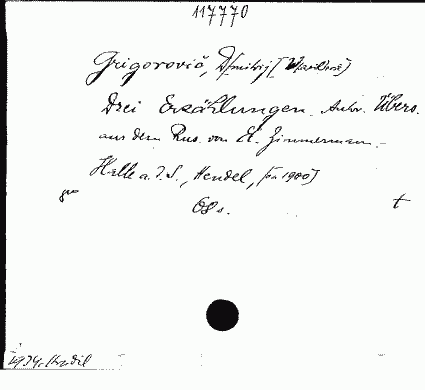 117770
Grigorovič, Dmitrij [Vasil'evič]
Drei Erzählungen. Autor. Übers.
aus dem Rus. von H. Zimmermann.
Halle a. d. S., Hendel, [ca 1900]
68 s. t